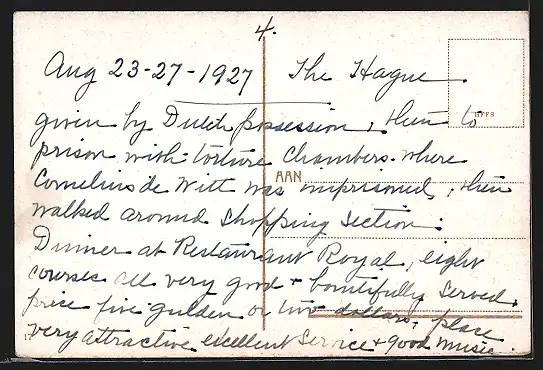 4.
Aug 23-27-1927 The Hague.
given by Dutch possession, then to
prison with torture chambers where
Cornelius de Witt was imprisoned, then
AAN
walked around shopping section.
Dinner at Restaurant Royal, eight
courses all very good + boutifully served.
price five gulden or two dollars, place
very attractive excellent service + good music.